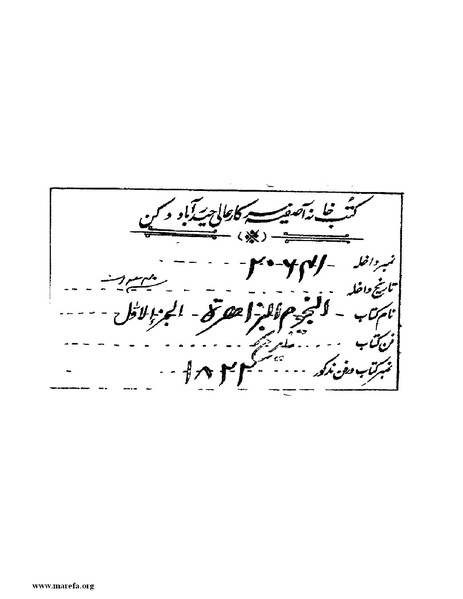 کتب خانہ آصفیہ سرکار عالی حیدرآباد دکن
نمبر داخلہ
تاریخ داخلہ
نام کتاب - النجوم الزاهرة - الجزء الاوّل
فن کتاب
نمبر کتاب در فن مذکور ۱۸۲۲
www.marefa.org